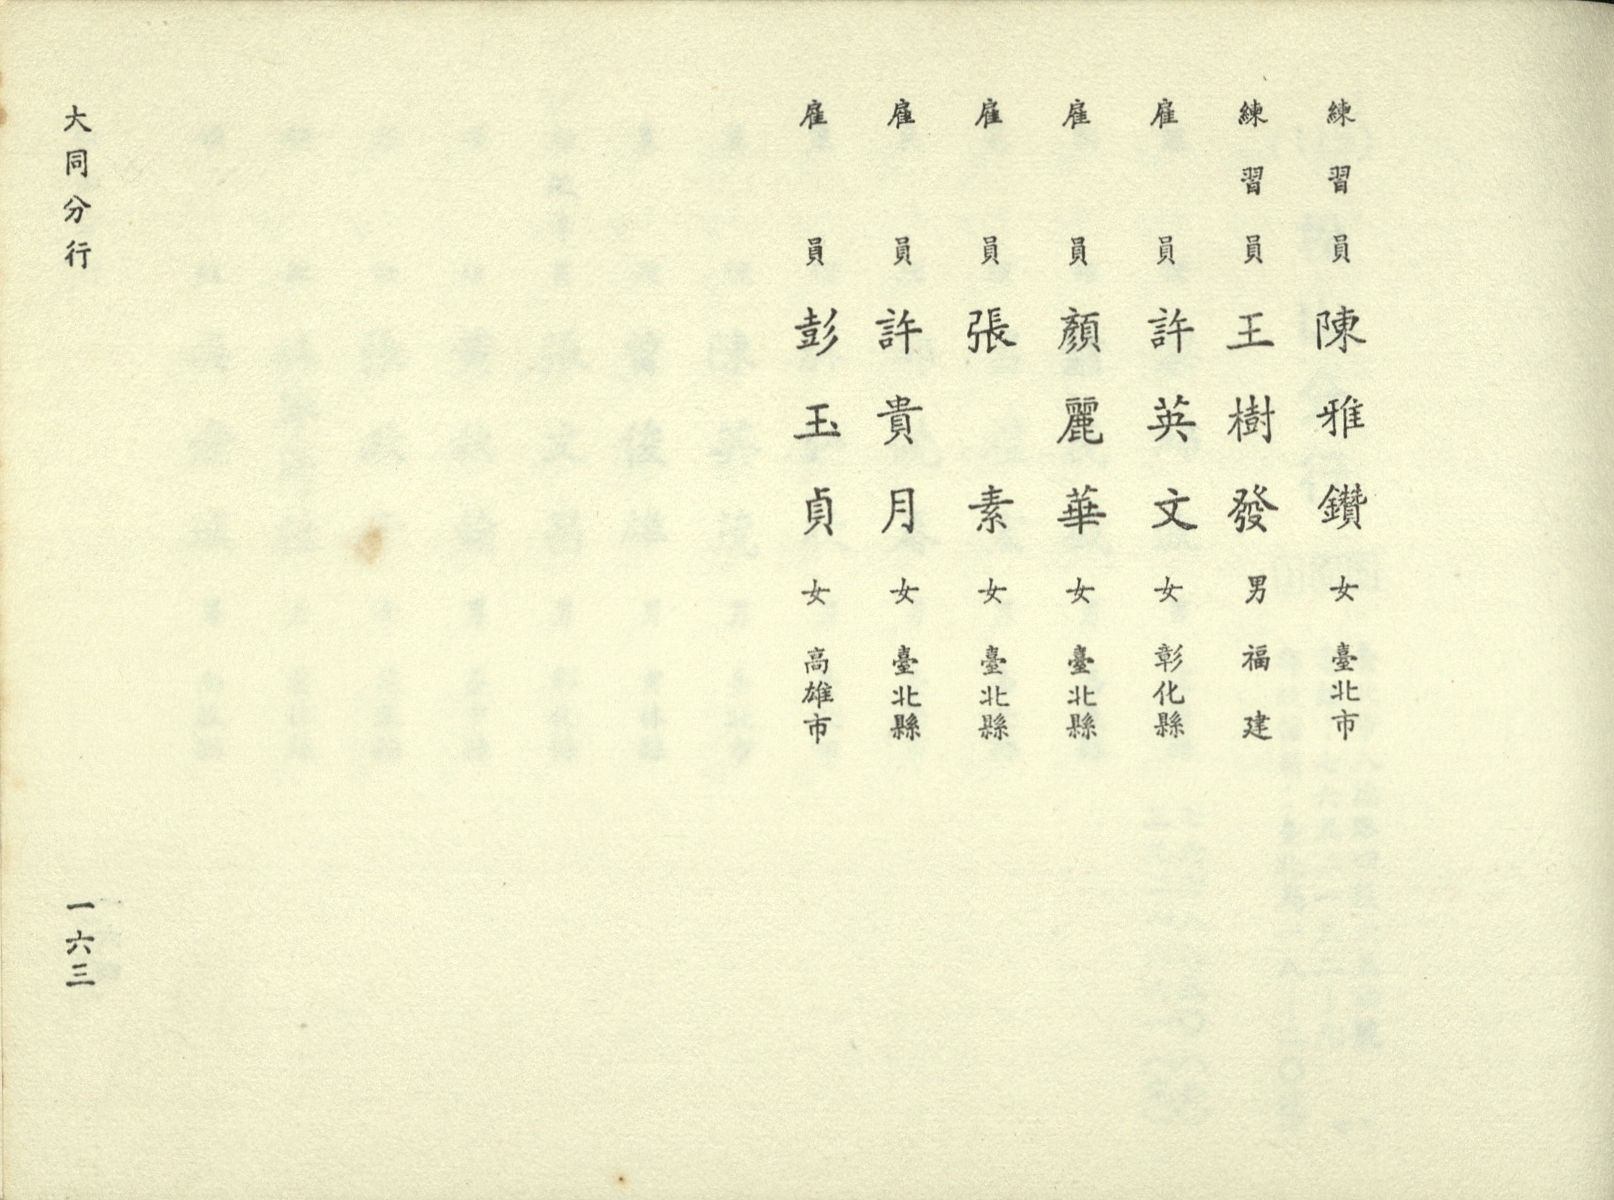 練習員 陳雅鑽 女 臺北市
練習員 王樹發 男 福建
雇員 許英文 女 彰化縣
雇員 顏麗華 女 臺北縣
雇員 張素 女 臺北縣
雇員 許貴月 女 臺北縣
雇員 彭玉貞 女 高雄市
大同分行
一六三